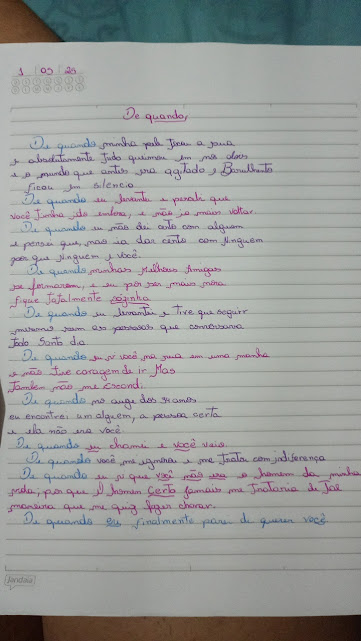 1 09 23
De quando,
De quando minha pele ficou a sua
e absolutamente tudo queimou em nós dois
e o mundo que antes era agitado e Barulhento
ficou em silêncio
De quando eu levantei e percebi que
você tinha ido embora, e não ia mais voltar.
De quando eu não dei certo com alguém
e pensei que não ia dar certo com ninguém
por que ninguém é você.
De quando minhas melhores amigas
se formaram, e eu por ser mais nova
fiquei totalmente sozinha
De quando eu levantei e tive que seguir
mesmo sem as pessoas que conversava
todo santo dia
De quando eu vi você na rua em uma manhã
e não tive coragem de ir Mas
também não me escondi
De quando no auge dos anos
eu encontrei um alguém, a pessoa certa
e ela não era você
De quando eu chamei e você veio
De quando você me ignorou e me tratou com indiferença
De quando eu vi que você não era o homem da minha
vida, por que o homem certo jamais me trataria de tal
maneira que me quiz fazer chorar.
De quando eu finalmente parei de querer você.
Jandaia